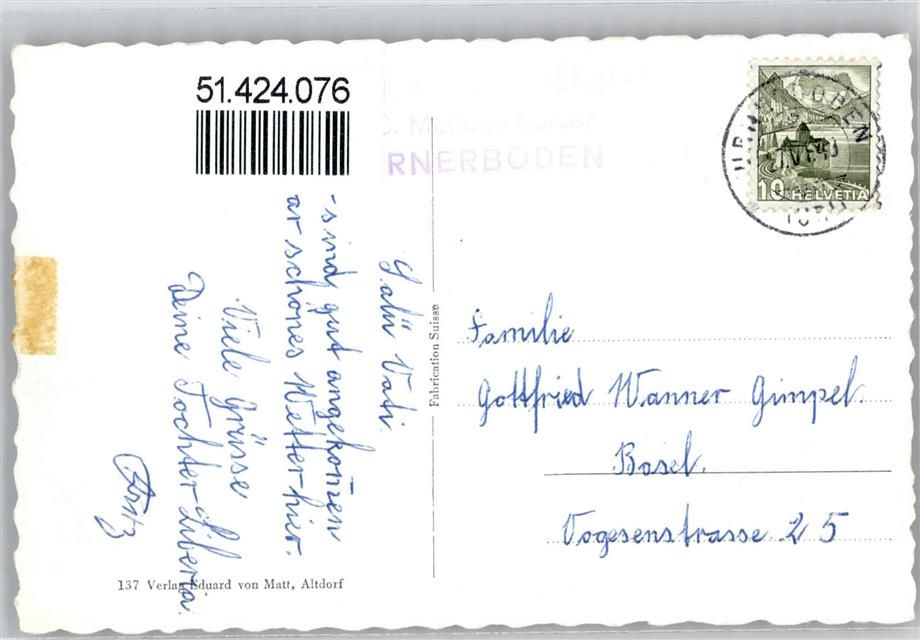 51.424.076
RNERBODEN
10 HELVETIA
Salü Vati.
-sind gut angekom̄en
ar schönes Wetter hier.
Viele Grüsse
Deine Tochter Liberia.
Fritz
Fabrication Suisse
Familie
Gottfried Wanner Gimpel.
Basel.
Vogesenstrasse 25
137 Verlag Eduard von Matt, Altdorf